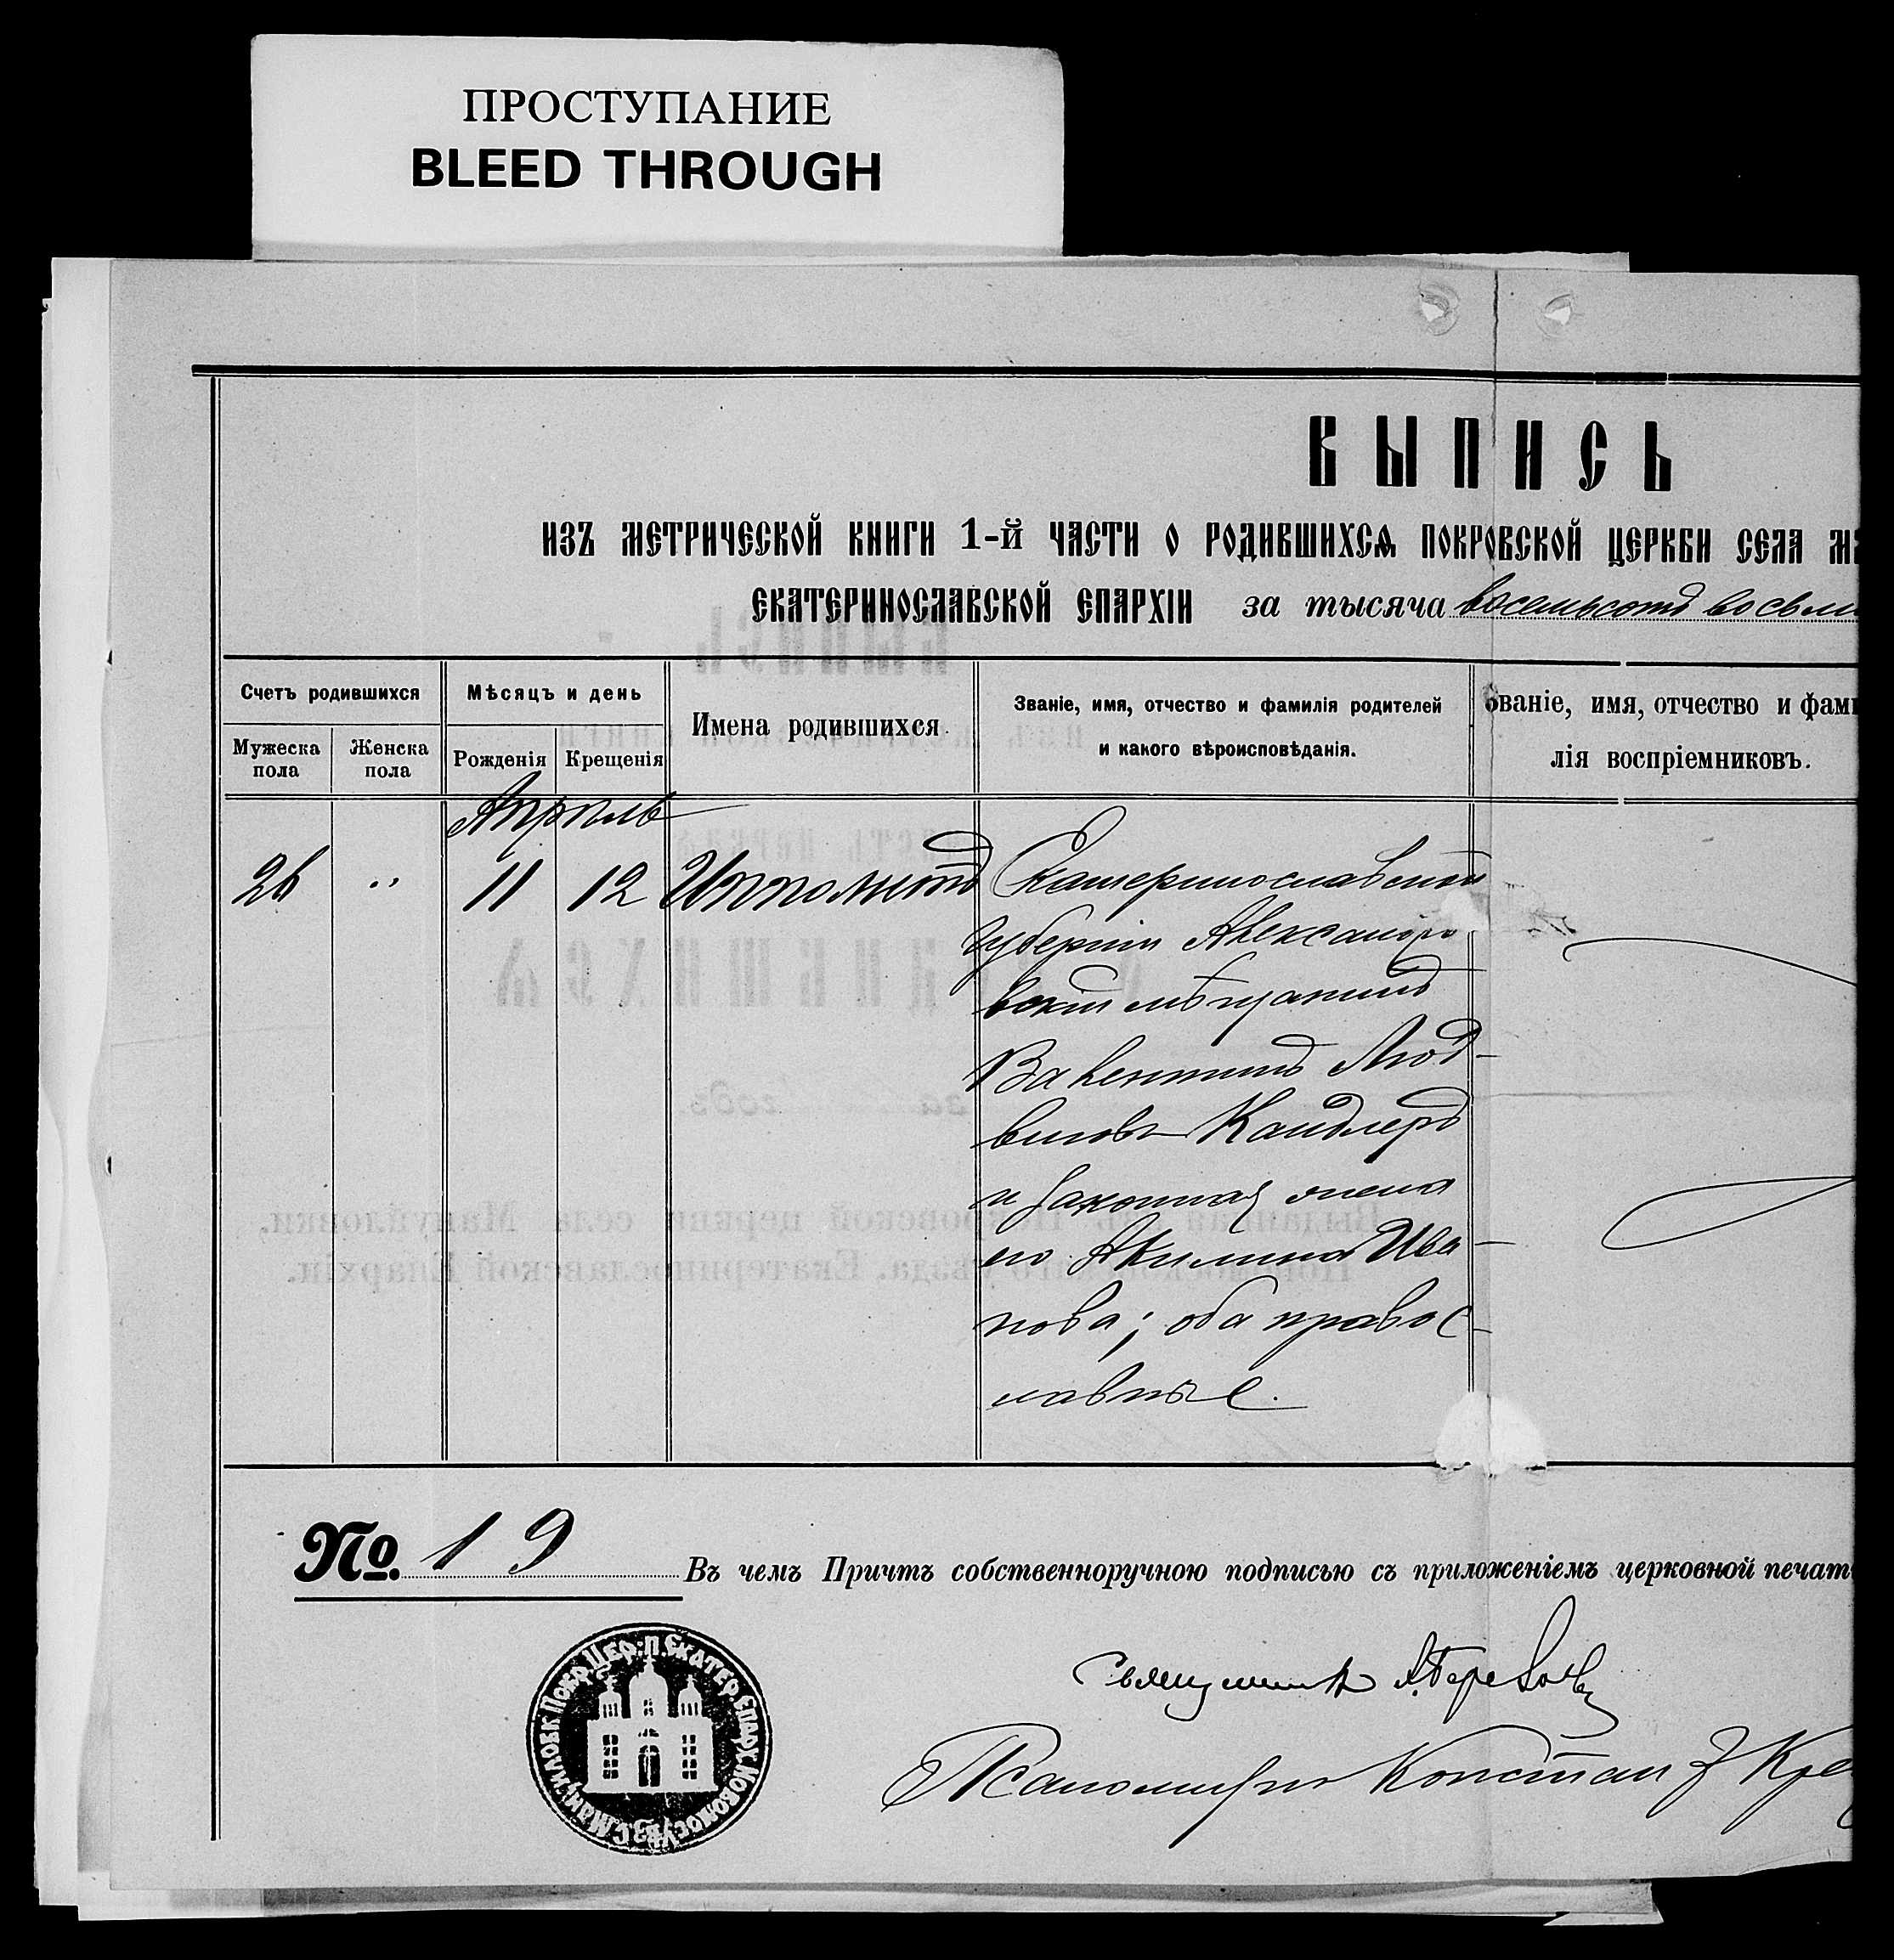 ПРОСТУПАНИЕ
BLEED THROUGH
ВЫПИСЬ
ИЗЪ МЕТРИЧЕСКОЙ КНИГИ 1-й ЧАСТИ О РОДИВШИХСЯ ПОКРОВСКОЙ ЦЕРКВИ СЕЛА МА
ЕКАТЕРИНОСЛАВСКОЙ ЕПАРХІИ за тысяча восемьсотъ восьм
Счетъ родившихся
Мѣсяцъ и день
Имена родившихся.
Званіе, имя, отчество и фамилія родителей
и какого вѣроисповѣданія.
Званіе, имя, отчество и фами
лія воспріемниковъ.
Мужеска
пола
Женска
пола
Рожденія
Крещенія
Апрѣль
26 „ 11 12 Ипполитъ
Екатеринославской
губерніи Александро
вскій мѣщанинъ
Валентинъ Люд-
виговъ Кандлеръ
и законная жена
его Акилина Ива-
нова; оба правос-
лавные.
№. 19 Въ чемъ Причтъ собственноручною подписью съ приложеніемъ церковной печат
Священникъ
Псаломщикъ Константин Кре
Выданная изъ Покровской церкви села Мануйловки,
Новомосковскаго уѣзда, Екатеринославской Епархіи.